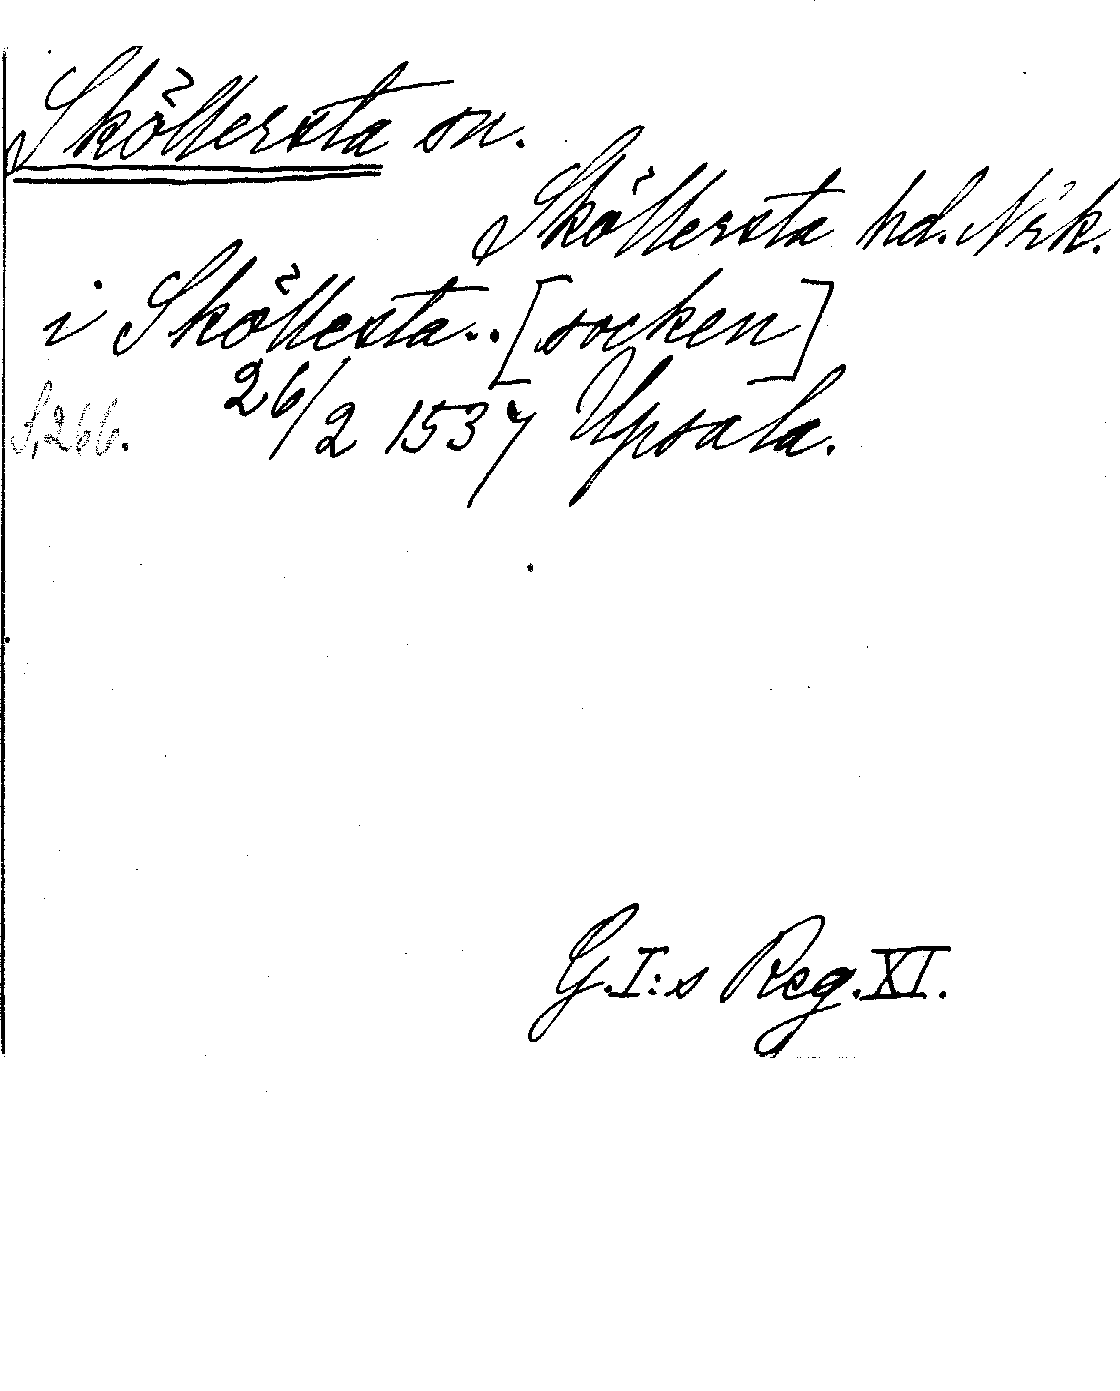 Sköllersta sn.
Sköllersta hd. Nrk.
i Sköllesta.. [socken]
26/2 1537 Upsala.
S. 266.
G.I:s Reg. XI.